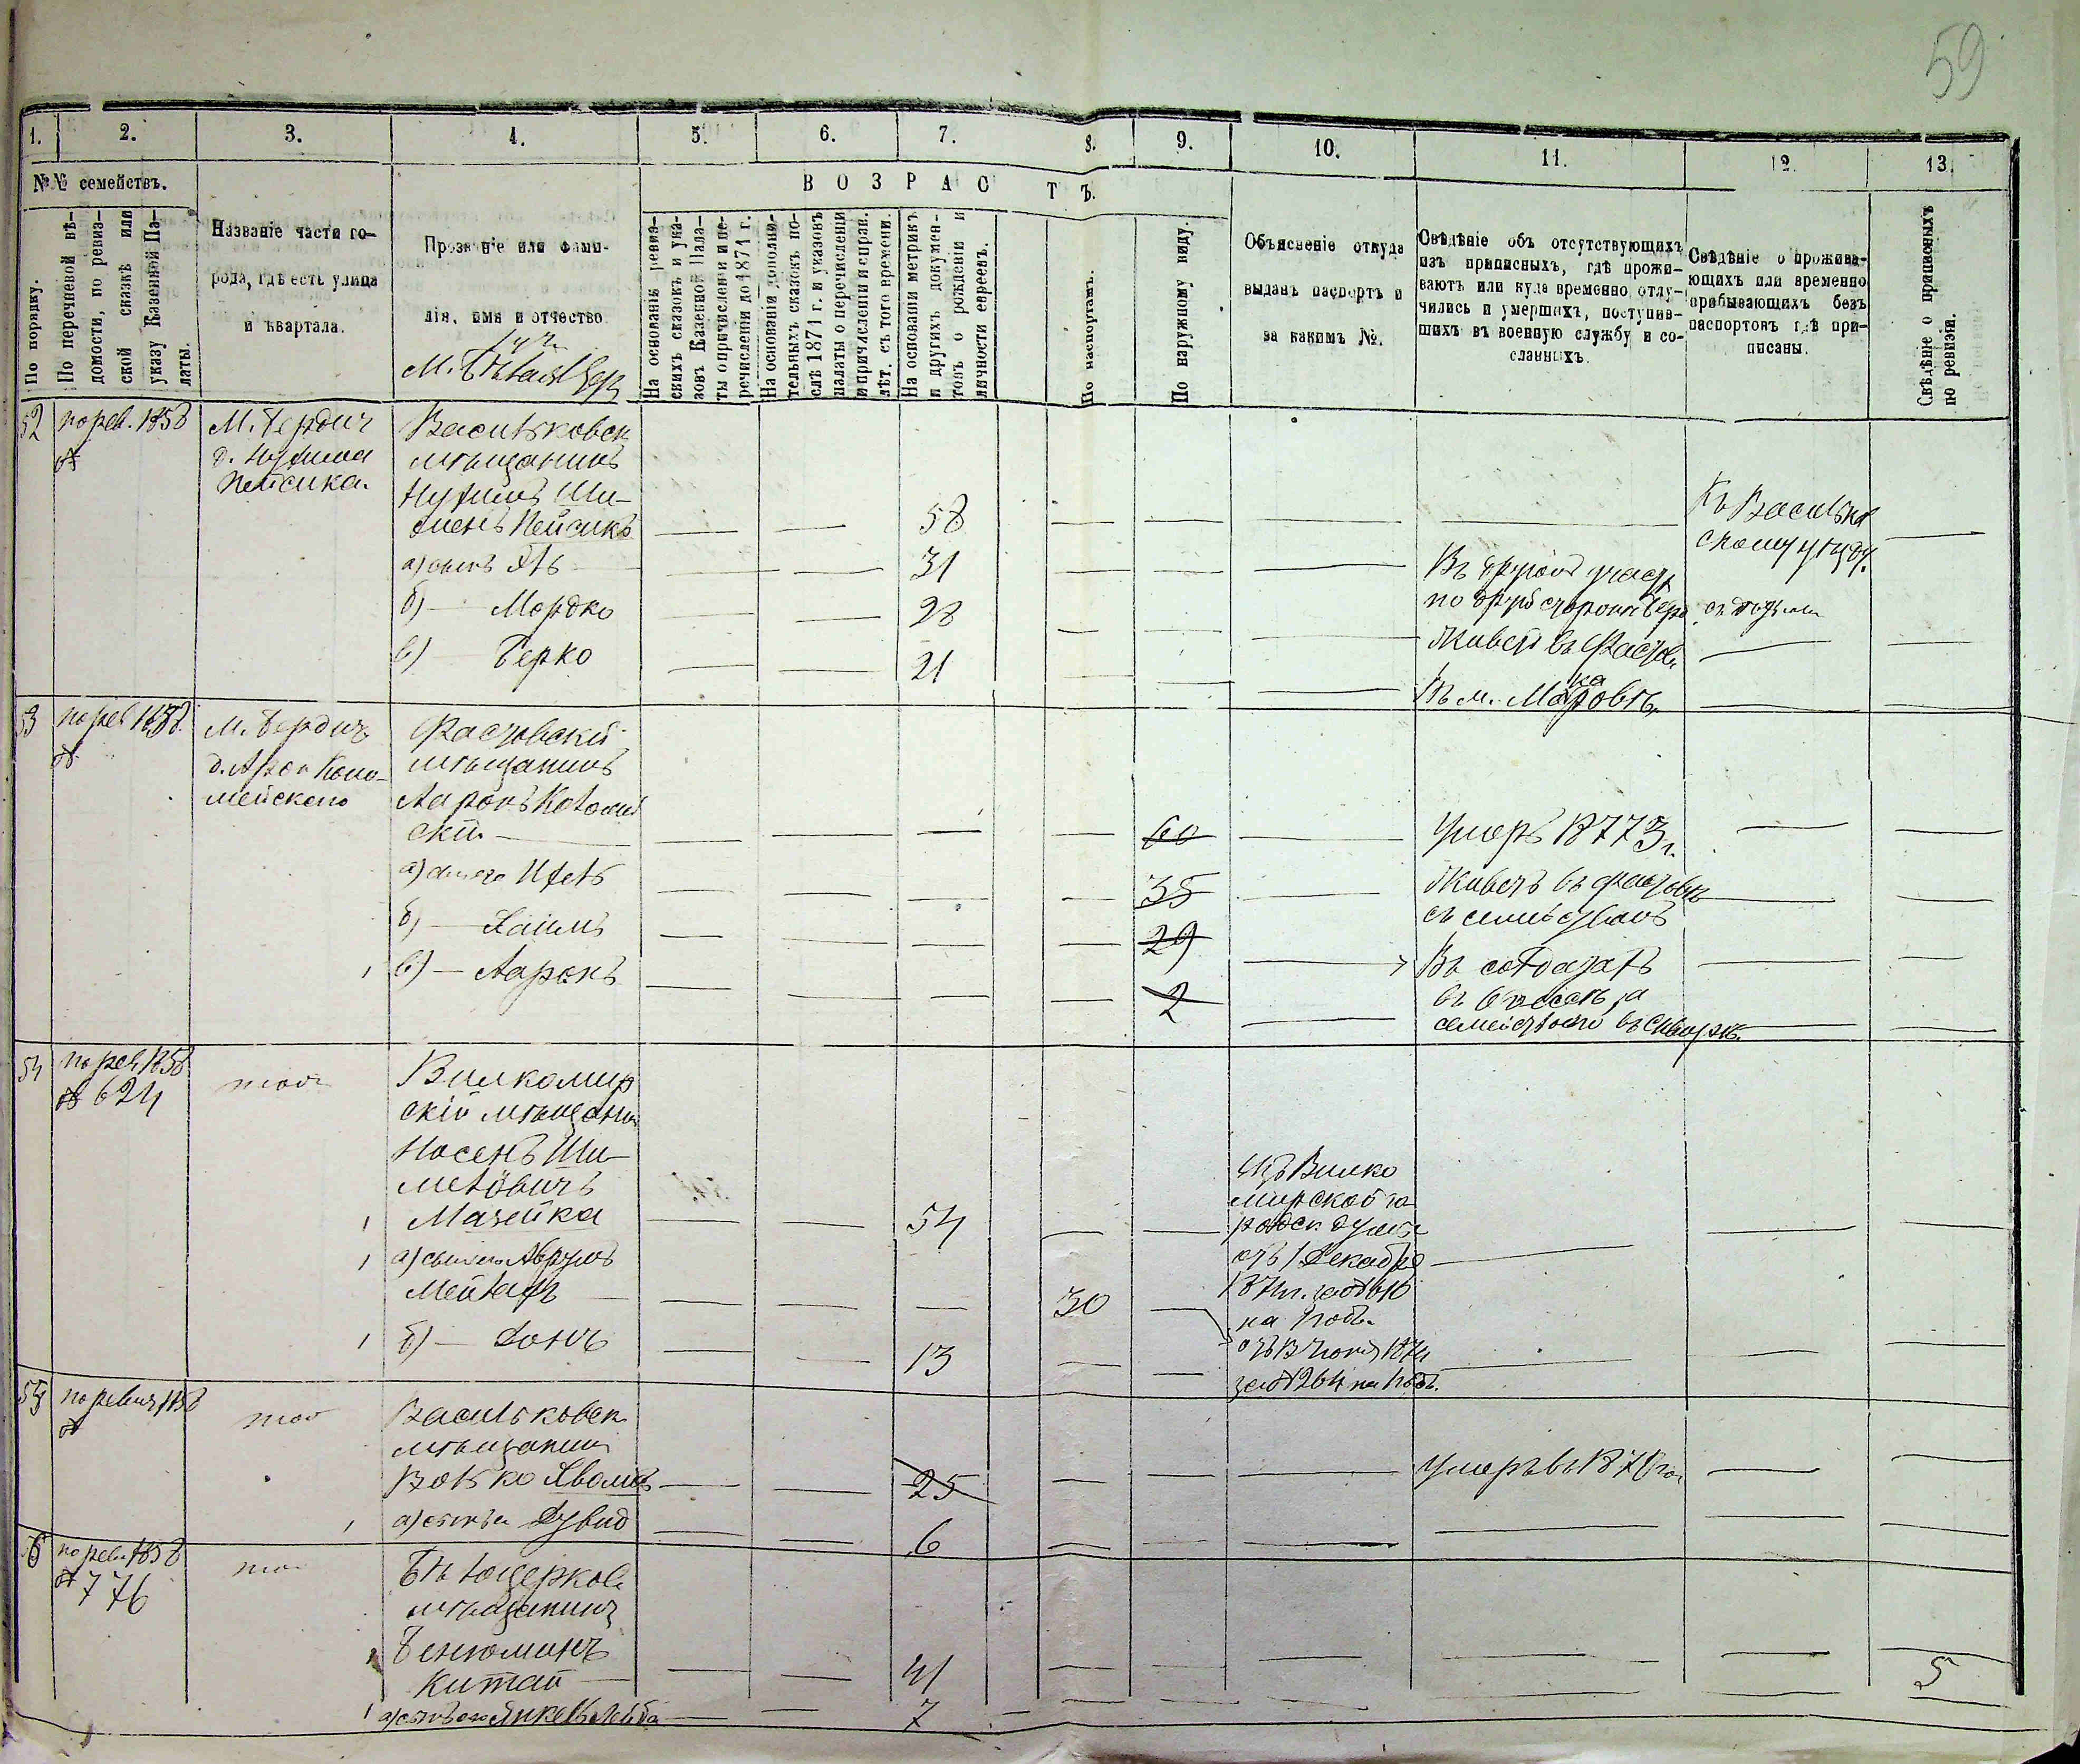 59
1. 2. 3. 4. 5. 6. 7. 8. 9. 10. 11. 12. 13.
№№ семействъ.
По порядку.
По перечневой вѣ-
домости, по ревиз-
ской сказкѣ или
указу Казенной Па-
латы.
Названіе части го-
рода, гдѣ есть улица
и квартала.
Прозваніе или фами-
лія, имя и отчество
ВОЗРАСТЪ.
На основаніи ревиз-
скихъ сказокъ и ука-
зовъ Казенной Пала-
ты о причисленіи и пе-
речисленіи до 1871 г.
На основаніи дополни-
тельныхъ сказокъ по-
слѣ 1871 г. и указовъ
палаты о перечисленіи
и причисленіи и справ.
лѣт. съ того времени.
На основаніи метрикъ
и другихъ докумен-
товъ о рожденіи и
личности евреевъ.
По паспортамъ.
По наружному виду.
Объясненіе откуда
выданъ паспортъ и
за какимъ №.
Свѣдѣніе объ отсутствующихъ
изъ приписныхъ, гдѣ прожи-
ваютъ или куда временно отлу-
чились и умершихъ, поступив-
шихъ въ военную службу и со-
сланныхъ.
Свѣдѣніе о прожива-
ющихъ или временно
прибывающихъ безъ
паспортовъ гдѣ при-
писаны.
Свѣдѣніе о приписныхъ
по ревизіи.
52
по рев. 1858
№
М. Бердич
д. Нухима
Пейсика.
Васильковск
мѣщанинъ
Нухимъ Ши-
менъ Пейсикъ
58
Къ Васильков
скому уѣзду.
а) сынъ
31
Въ
по
б) — Мордко
28
Живетъ въ Фастов
в) Берко
21
Въ м.
53
по рев 1858.
№
М. Бердич
д. Арон Коло-
мейскаго
Фастовскій
мѣщанинъ
Ааронъ Коломій
скій
60
Умеръ 1873 г.
а)
35
Живетъ въ Фастовѣ
съ семействомъ
б) — Хаимъ
29
Въ солдатахъ
в) — Ааронъ
2
семействомъ въ
54
по рев 1858
№ 624
тоже
Вилкомир
скій мѣщанин
Носенъ Ши-
меловичъ
Мазейка
54
Изъ Вилко
мирской го
родск думы
отъ 1 Декабря
на 1 годъ.
а) сынъ его Аврумъ
30
б) —
13
отъ
за № 1264 на 1 годъ.
55
по ревиз 1858
№
тоже
Васильковск
мѣщанин
Волько
25
Умеръ въ 1876 год
а) сынъ его Дувид
6
56
по рев. 1858
№ 776
тоже
Бѣлоцерков
мѣщанинъ
Бенюминъ
Китай
41
5
а) сынъ его Янкель Лейба
7